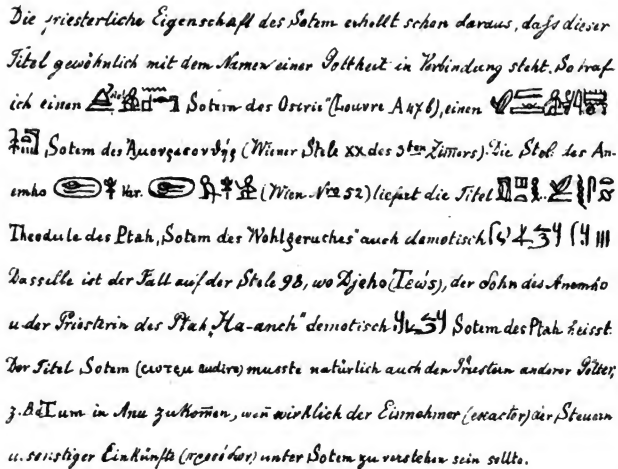 Die priesterliche Eigenschaft des Sotem erhellt schon daraus, daſs dieser
Titel gewöhnlich mit dem Namen einer Gottheit in Verbindung steht. So traf
ich einen Sotem des Osiris" (Louvre A 476), einen
Sotem des (Wiener Stele XX des 3ten Zimers). Die Stel. des An-
emho Var. (Wien Nro 52) liefert die Titel
Theodule des Ptah, Sotem des Wohlgeruches" auch demotisch
Dasselbe ist der Fall auf der Stele 98, wo Djeho (Τεώς), der Sohn des Anemho
u. der Priesterin des Ptah „Ha-anch" demotisch Sotem des Ptah heisst.
Der Titel Sotem (ⲥⲱⲧⲉⲙ audire) musste natürlich auch den Priestern anderer Götter,
z. B. Tum in Anu zukom̄en, wen̄ wirklich der Einnehmer (exactor) der Steuern
u. sonstiger Einkünfte unter Sotem zu verstehen sein sollte.